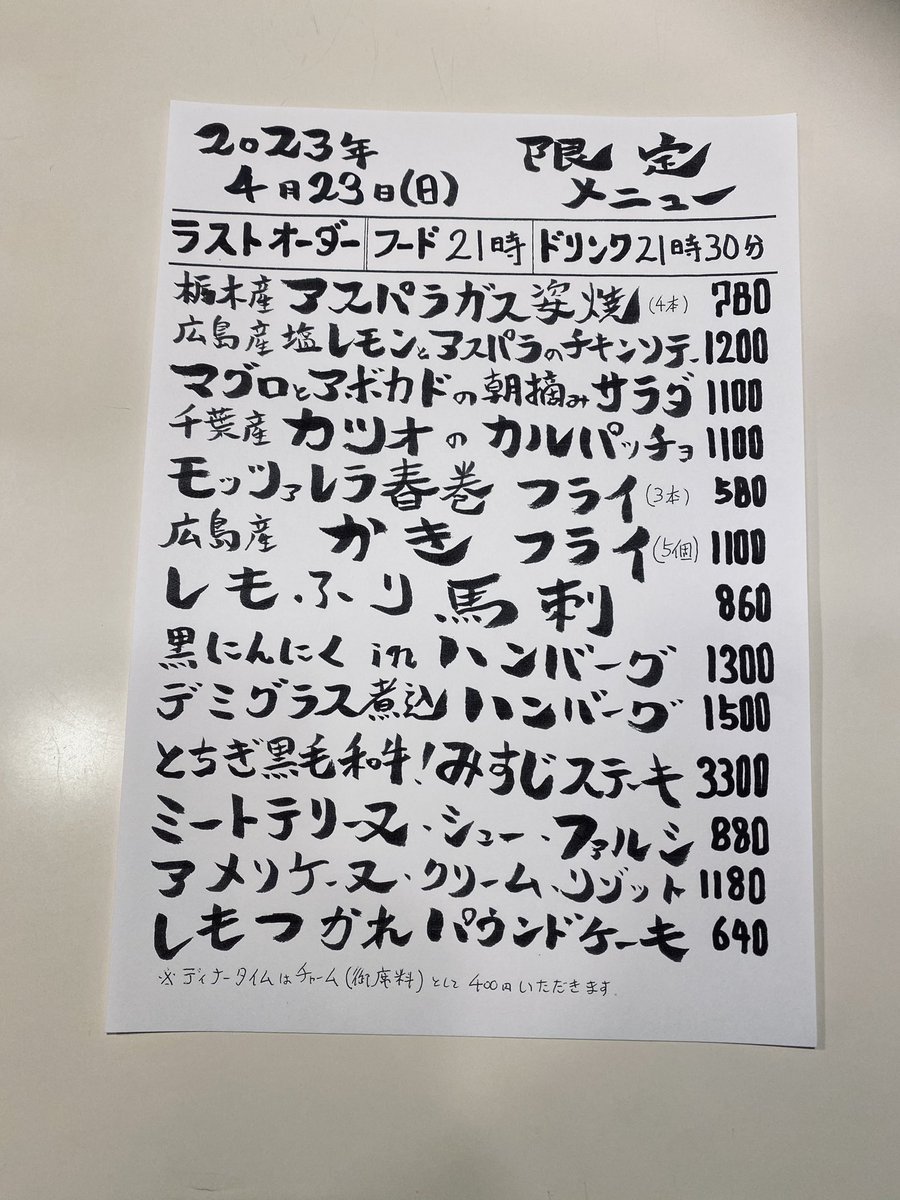 2023年
4月23日(日)
限定
メニュー
ラストオーダー フード21時 ドリンク21時30分
栃木産 アスパラガス姿焼(4本) 780
広島産 塩レモンとアスパラのチキンソテー 1200
マグロとアボカドの朝摘みサラダ 1100
千葉産 カツオのカルパッチョ 1100
モッツァレラ春巻 フライ(3本) 580
広島産 かき フライ(5個) 1100
しもふり 馬刺 860
黒にんにく in ハンバーグ 1300
デミグラス煮込ハンバーグ 1500
とちぎ黒毛和牛!みすじステーキ 3300
ミートテリーヌ・シュー・ファルシ 880
アメリケーヌ・クリーム・リゾット 1180
しもつかれパウンドケーキ 640
※ディナータイムはチャーム(御席料)として400円いただきます.